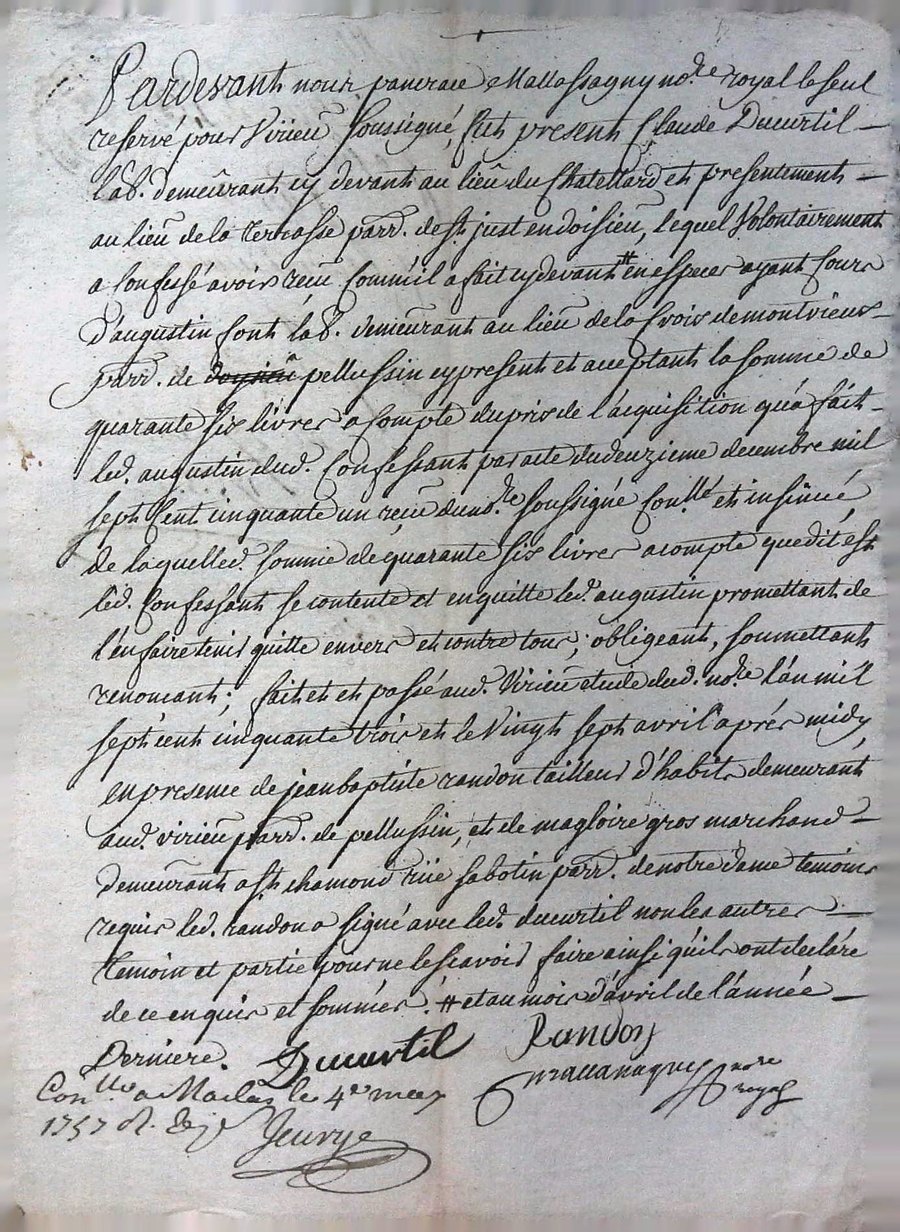 Pardevant nous pancrace Mallassagny no.re royal le seul
reservé pour Virieu soussigné, fut present Claude Ducurtil —
lab. demeurant cy devant au lieu du Chatellard et presentement —
au lieu de la terrasse parr. de st. just en doisieu, lequel Volontairement
a Confessé avoir reçu Comm'il a fait cy devant # en especes ayant Cours
D'augustin font lab. demeurant au lieu de la Croix de montvieux —
parr. de doysieu pellussin cy present et acceptant la somme de
quarante six livres a compte du prix de l'acquisition qu'a fait —
led. augustin dud. Confessant par acte du deuzieme decembre mil
sept Cent cinquante un reçu du no.re soussigné Con.llé et insinué
de laquelle d. somme de quarante six livres a compte que dit est
led. Confessant se contente et en quitte led. augustin promettant de
l'en faire tenir quitte envers et contre tous; obligeant, soumettant
renoncant; fait et et passé aud. Virieu etude dud. no.re l'an mil
sept cent cinquante trois et le Vingt sept avril aprés midy,
en presence de jean baptiste randon tailleur d'habits demeurant
aud. virieu parr. de pellussin, et de magloire gros marchand —
demeurant a st. chamond rüe sabotin parr. de notre dame temoins
requis led. randon a signé avec led. ducurtil non les autres —
temoin et partie pour ne le scavoir faire ainsi qu'ils ont declaré
de ce enquis et sommés. # et au mois d'avril de l'année —
Derniere. Ducurtil Randon
no.re royal
Con.llé a Maclas le 4e may
1753